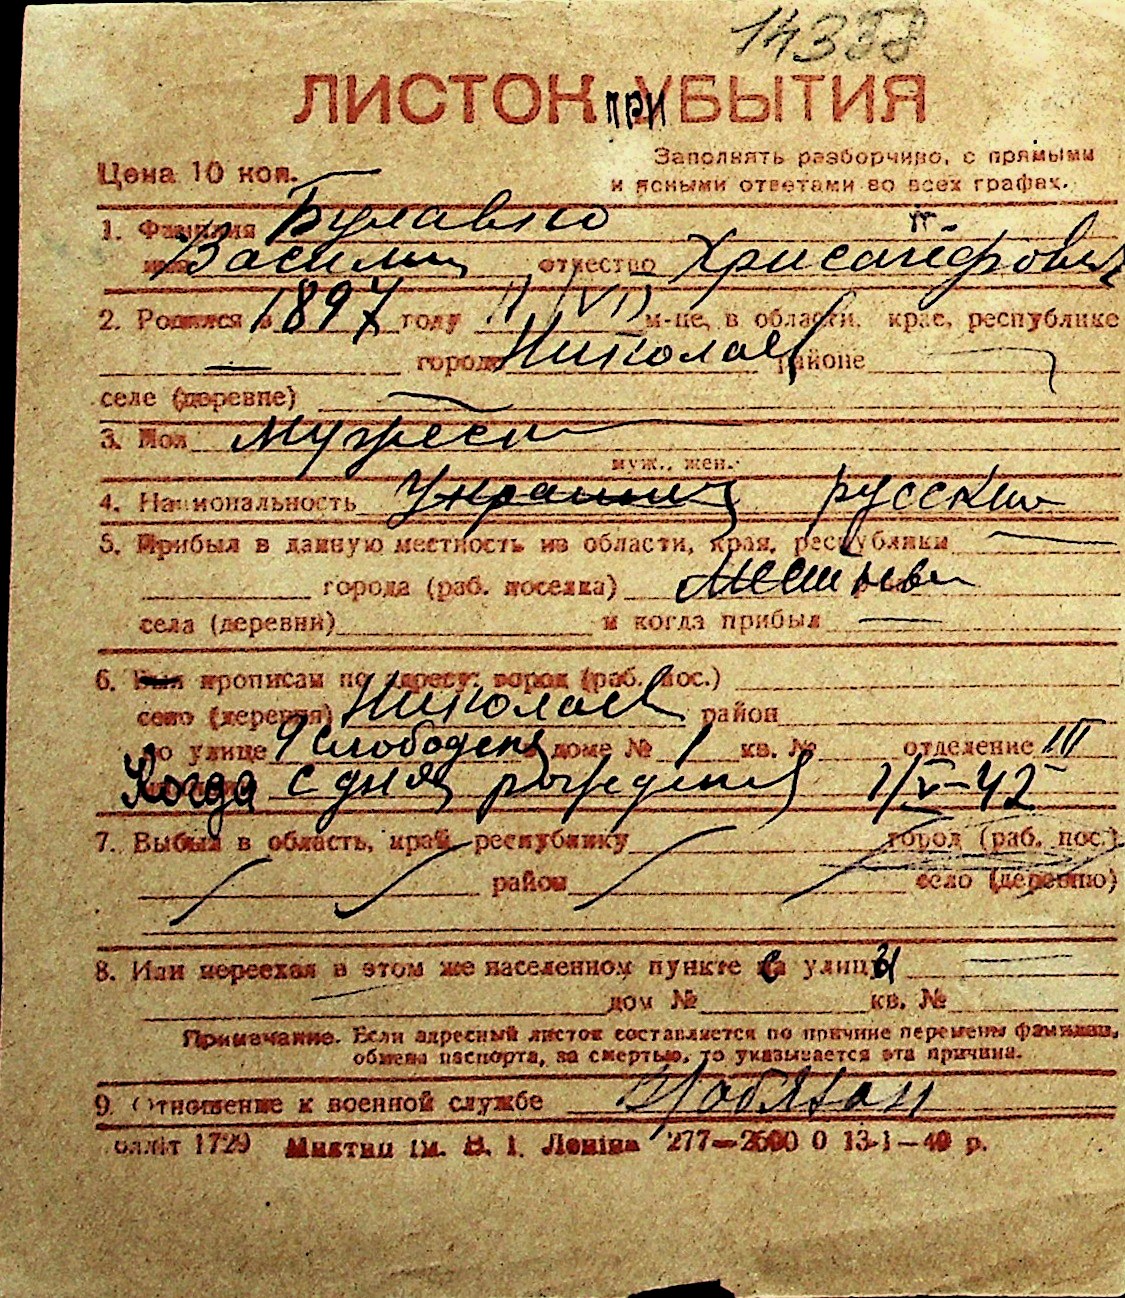 14338
ЛИСТОК при УБЫТИЯ
Цена 10 коп.
Заполнять разборчиво, с прямыми
и ясными ответами во всех графах.
1. Фамилия Булавко
имя Василий отчество Хрисанфович
2. Родился в 1897 году 11/VII м-це, в области, крае, республике
городе Николаев районе
селе (деревне)
3. Пол мужеск
муж., жен.
4. Национальность Украинец русский
5. Прибыл в данную местность из области, края, республики
города (раб. поселка)
села (деревни) и когда прибыл
6. Был прописан по адресу: город (раб. пос.)
село (деревня) Николаев район
по улице 9 Слободск доме № 1 кв. № отделение III
Когда с дня рождения 1/V-42
7. Выбыл в область, край, республику город (раб. пос.)
район село (деревню)
8. Или переехал в этом же населенном пункте с улицы
дом № кв. №
Примечание. Если адресный листок составляется по причине перемены фамилии,
обмена паспорта, за смертью, то указывается эта причина.
9. Отношение к военной службе
облліт 1729 Миктип ім. В. І. Леніна 277—2500 0 13-1—40 р.